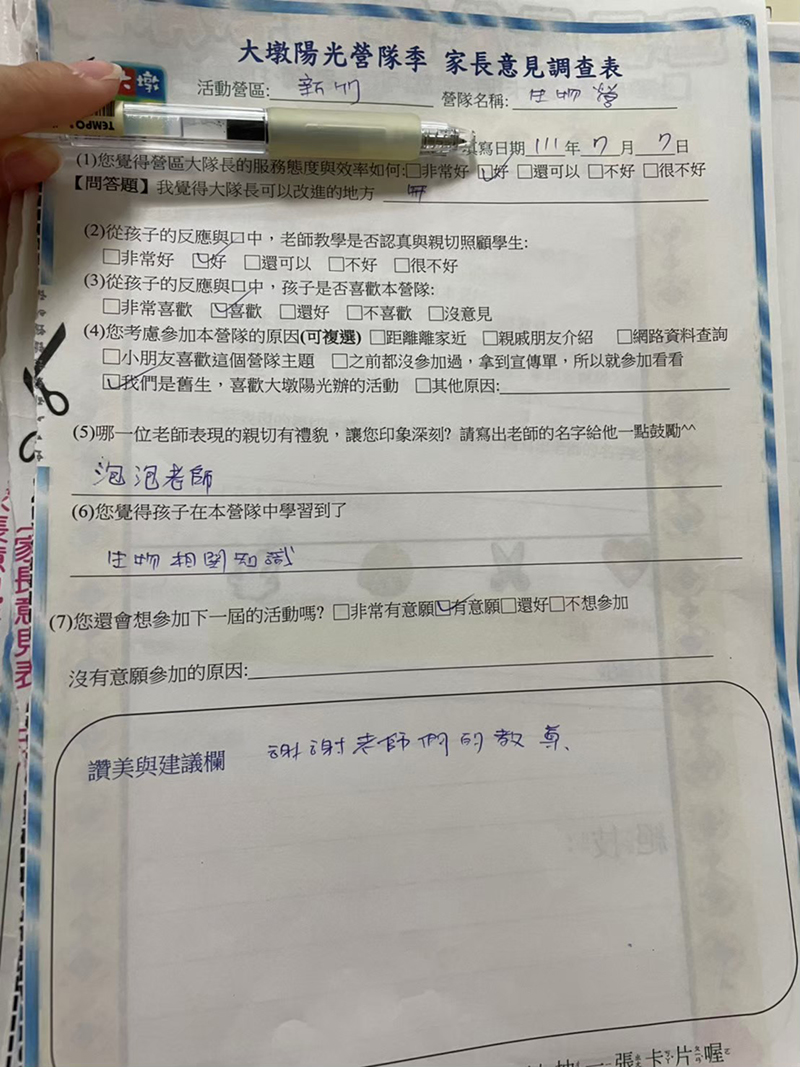 大墩陽光營隊季 家長意見調查表
大墩
活動營區: 新竹 營隊名稱: 生物營
TEMPO
填寫日期 111 年 7 月 7 日
(1)您覺得營區大隊長的服務態度與效率如何:□非常好 ☑好 □還可以 □不好 □很不好
【問答題】我覺得大隊長可以改進的地方 無
(2)從孩子的反應與口中，老師教學是否認真與親切照顧學生:
□非常好 ☑好 □還可以 □不好 □很不好
(3)從孩子的反應與口中，孩子是否喜歡本營隊:
□非常喜歡 ☑喜歡 □還好 □不喜歡 □沒意見
(4)您考慮參加本營隊的原因(可複選) □距離離家近 □親戚朋友介紹 □網路資料查詢
□小朋友喜歡這個營隊主題 □之前都沒參加過，拿到宣傳單，所以就參加看看
☑我們是舊生，喜歡大墩陽光辦的活動 □其他原因:
(5)哪一位老師表現的親切有禮貌，讓您印象深刻? 請寫出老師的名字給他一點鼓勵^^
泡泡老師
(6)您覺得孩子在本營隊中學習到了
生物相關知識
(7)您還會想參加下一屆的活動嗎? □非常有意願☑有意願□還好□不想參加
沒有意願參加的原因:
讚美與建議欄 謝謝老師們的教導、
一張卡片喔
家長意見表